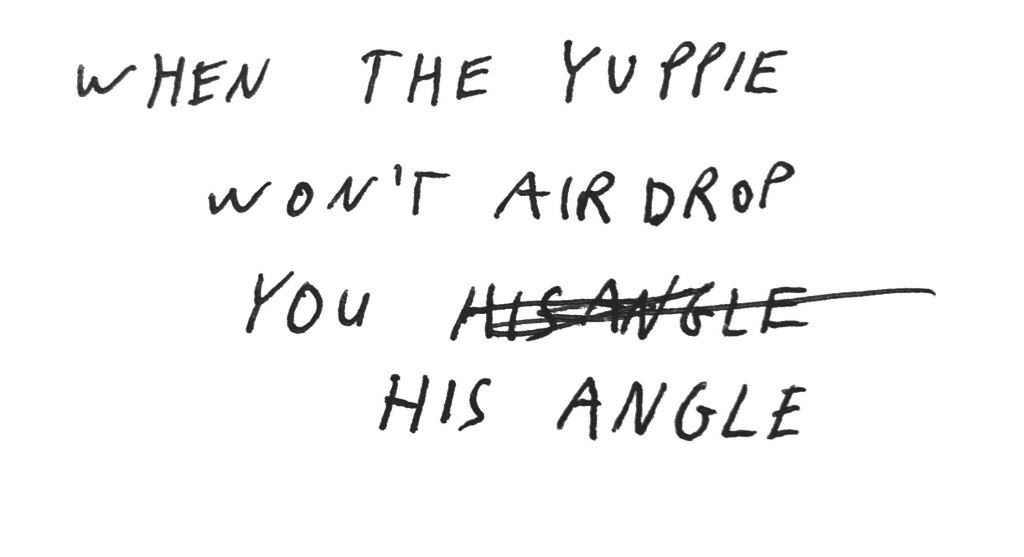 WHEN THE YUPPIE
WON'T AIRDROP
YOU HIS ANGLE
HIS ANGLE